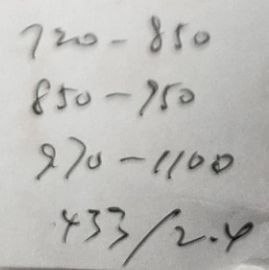 720-850
850-950
970-1100
.433/2.4